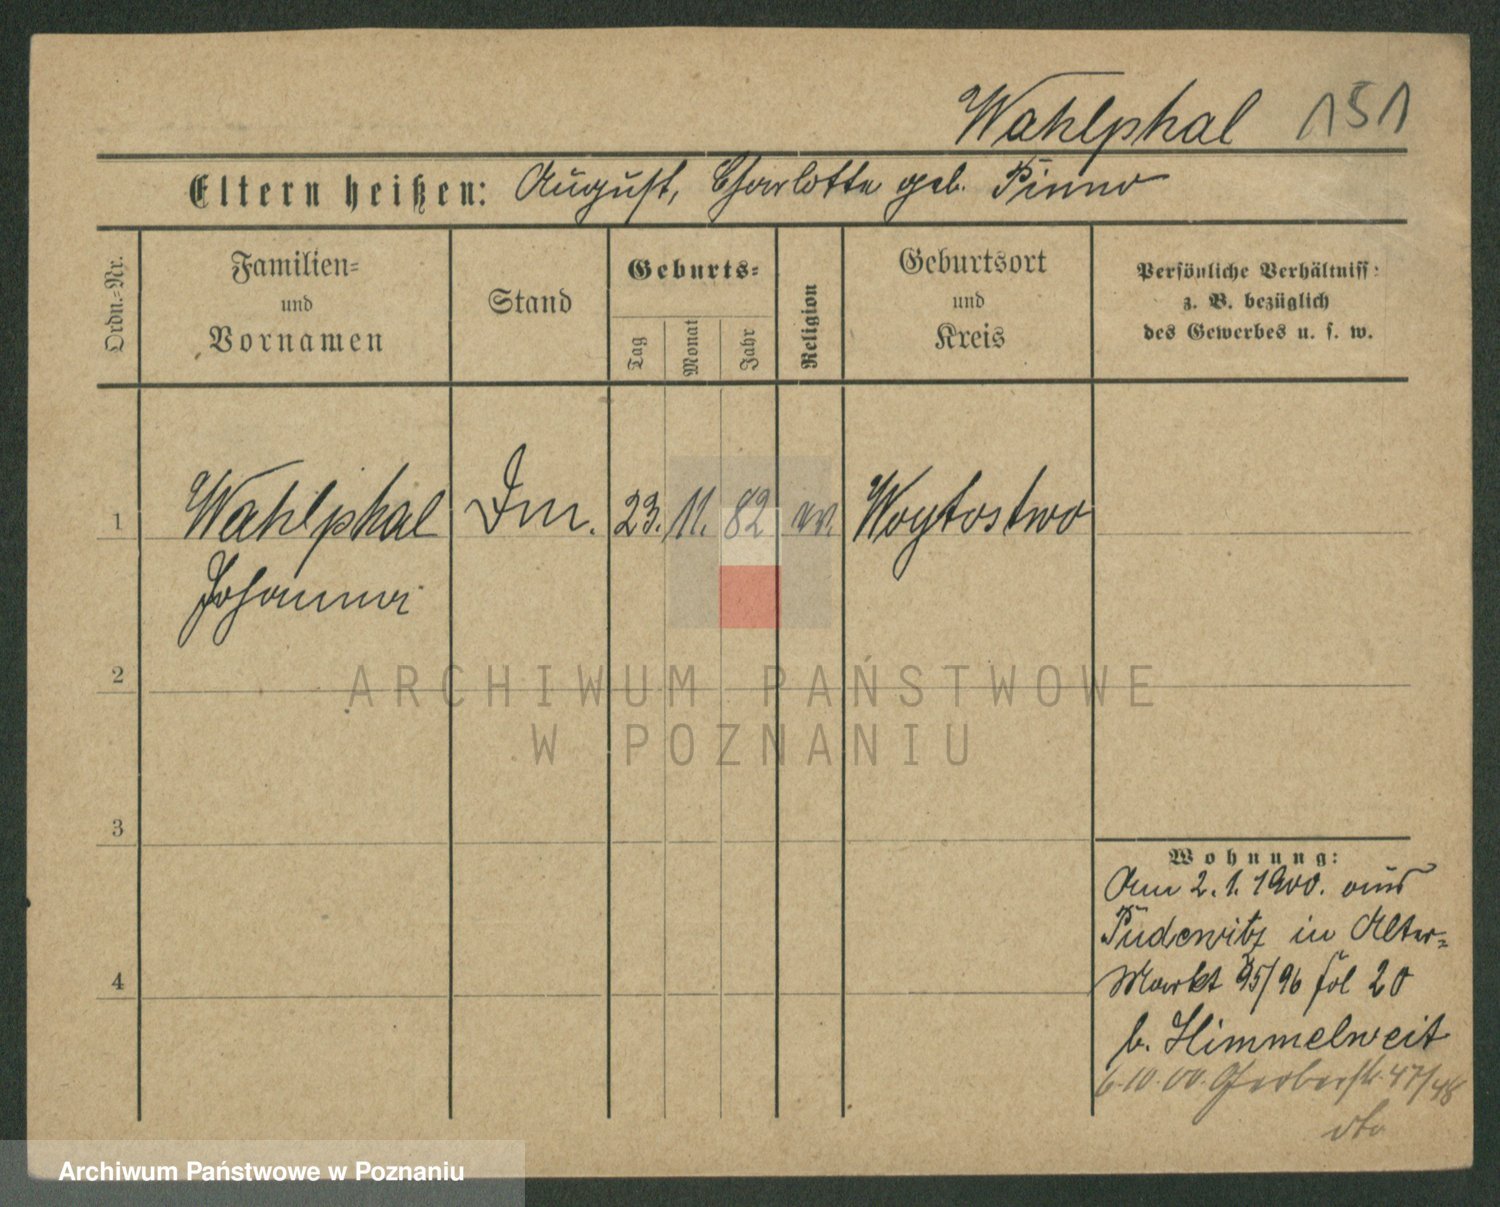 Wahlphal 151
Eltern heißen: August, Charlotte geb. Pinno
Ordn.-Nr.
Familien-
und
Vornamen
Stand
Geburts-
Tag
Monat
Jahr
Religion
Geburtsort
und
Kreis
Persönliche Verhältniss:
z. B. bezüglich
des Gewerbes u. s. w.
1 Wahlphal Dm. 23. 11. 82 ev. Woytostwo
Johanna
2
3
4
Wohnung:
Am 2. 1. 1900. aus
Pudewitz in Alter-
Markt 95/96 fol 20
b. Himmelweit
6.10.00. Gerberstr. 47/48
dto
ARCHIWUM PAŃSTWOWE
W POZNANIU
Archiwum Państwowe w Poznaniu